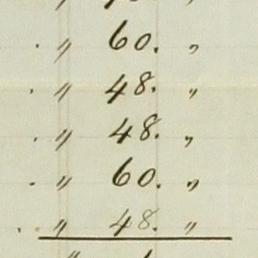 . " 60. "
. " 48. "
. " 48. "
. " 60. "
. " 48. "